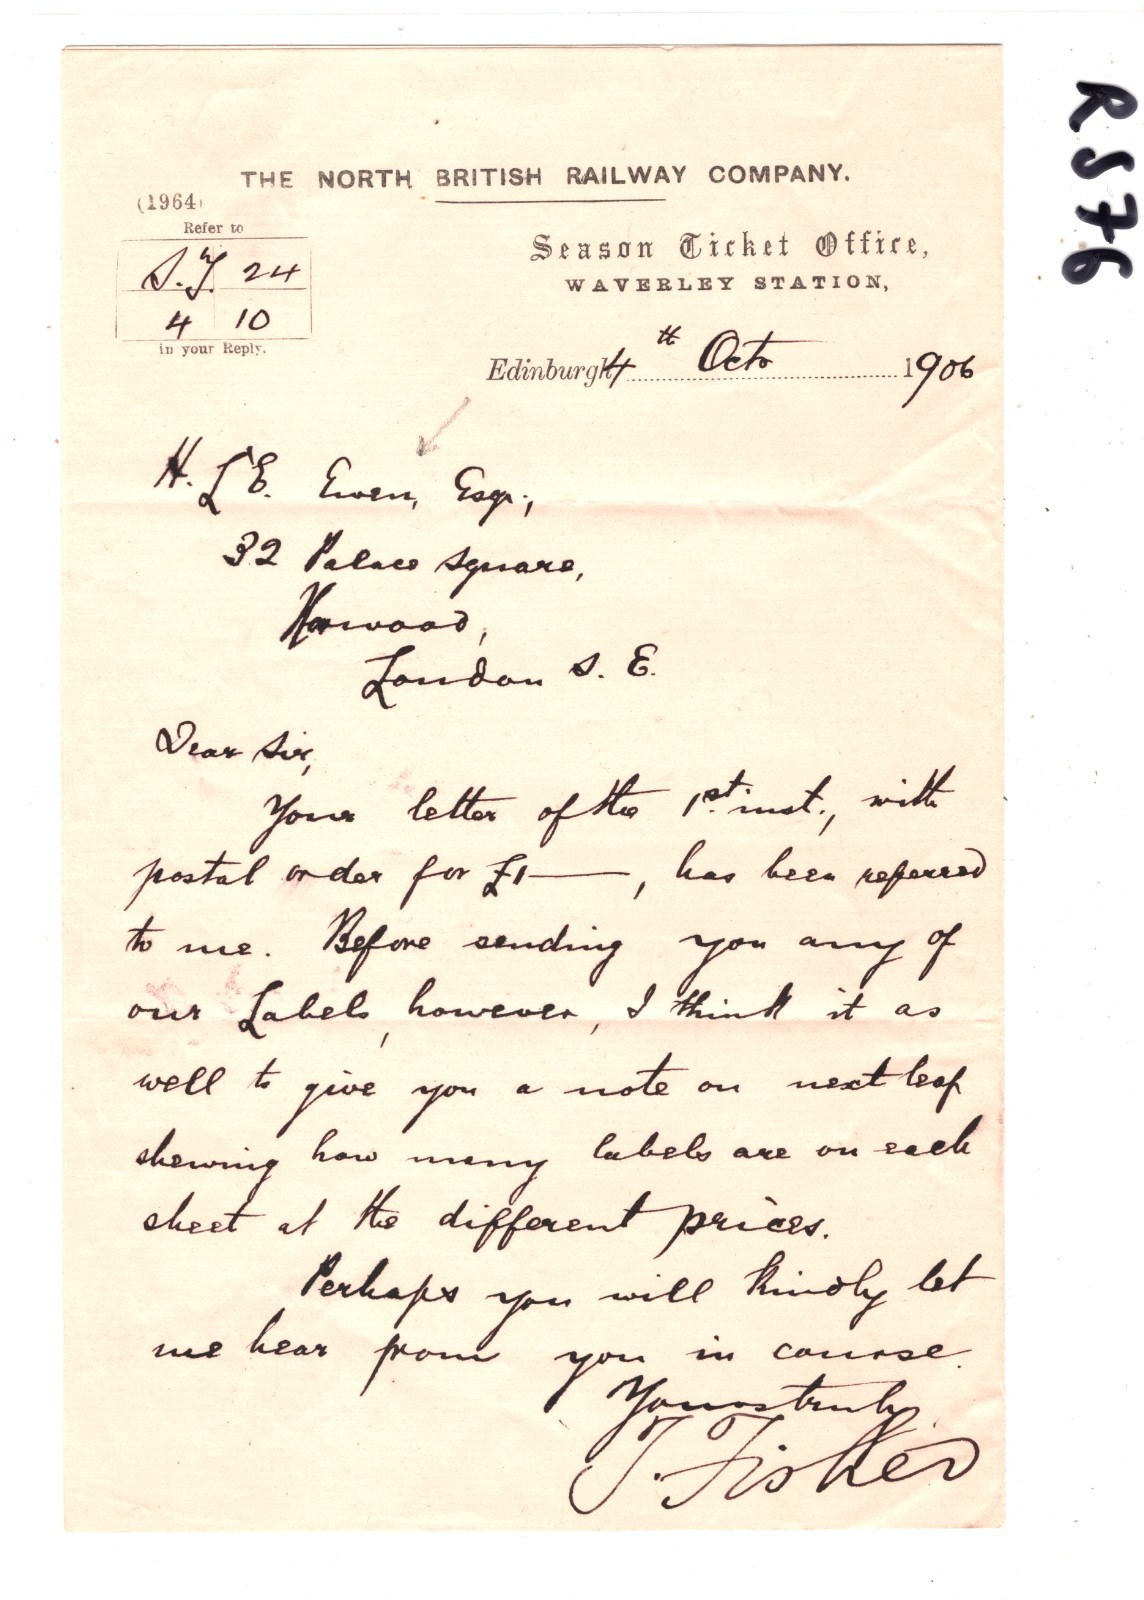 THE NORTH BRITISH RAILWAY COMPANY.
(1964)
Refer to
S.T. 24
4 10
in your Reply.
Season Ticket Office,
WAVERLEY STATION,
Edinburgh 4th Octo 1906
H. L'E. Ewen, Esqr.,
32 Palace Square,
Norwood,
London S. E.
Dear Sir,
Your letter of the 1st. inst., with
postal order for £1 —, has been referred
to me. Before sending you any of
our Labels, however, I think it as
well to give you a note on next leaf
shewing how many labels are on each
sheet at the different prices.
Perhaps you will kindly let
me hear from you in course.
Yours truly
J. Fisher
RS76